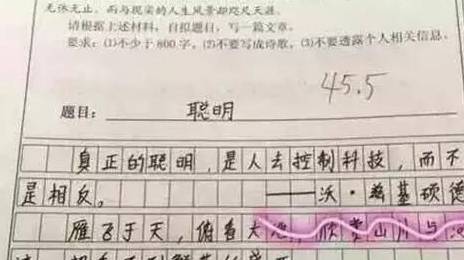 无休无止，而与现实的人生风景却咫尺天涯。
请根据上述材料，自拟题目，写一篇文章。
要求：(1)不少于800字，(2)不要写成诗歌，(3)不要透露个人相关信息。
45.5
题目：聪明
真正的聪明，是人去控制科技，而不
是相反。 ——沃·兹基硕德
雁飞于天，俯看大地，欣赏山川与河